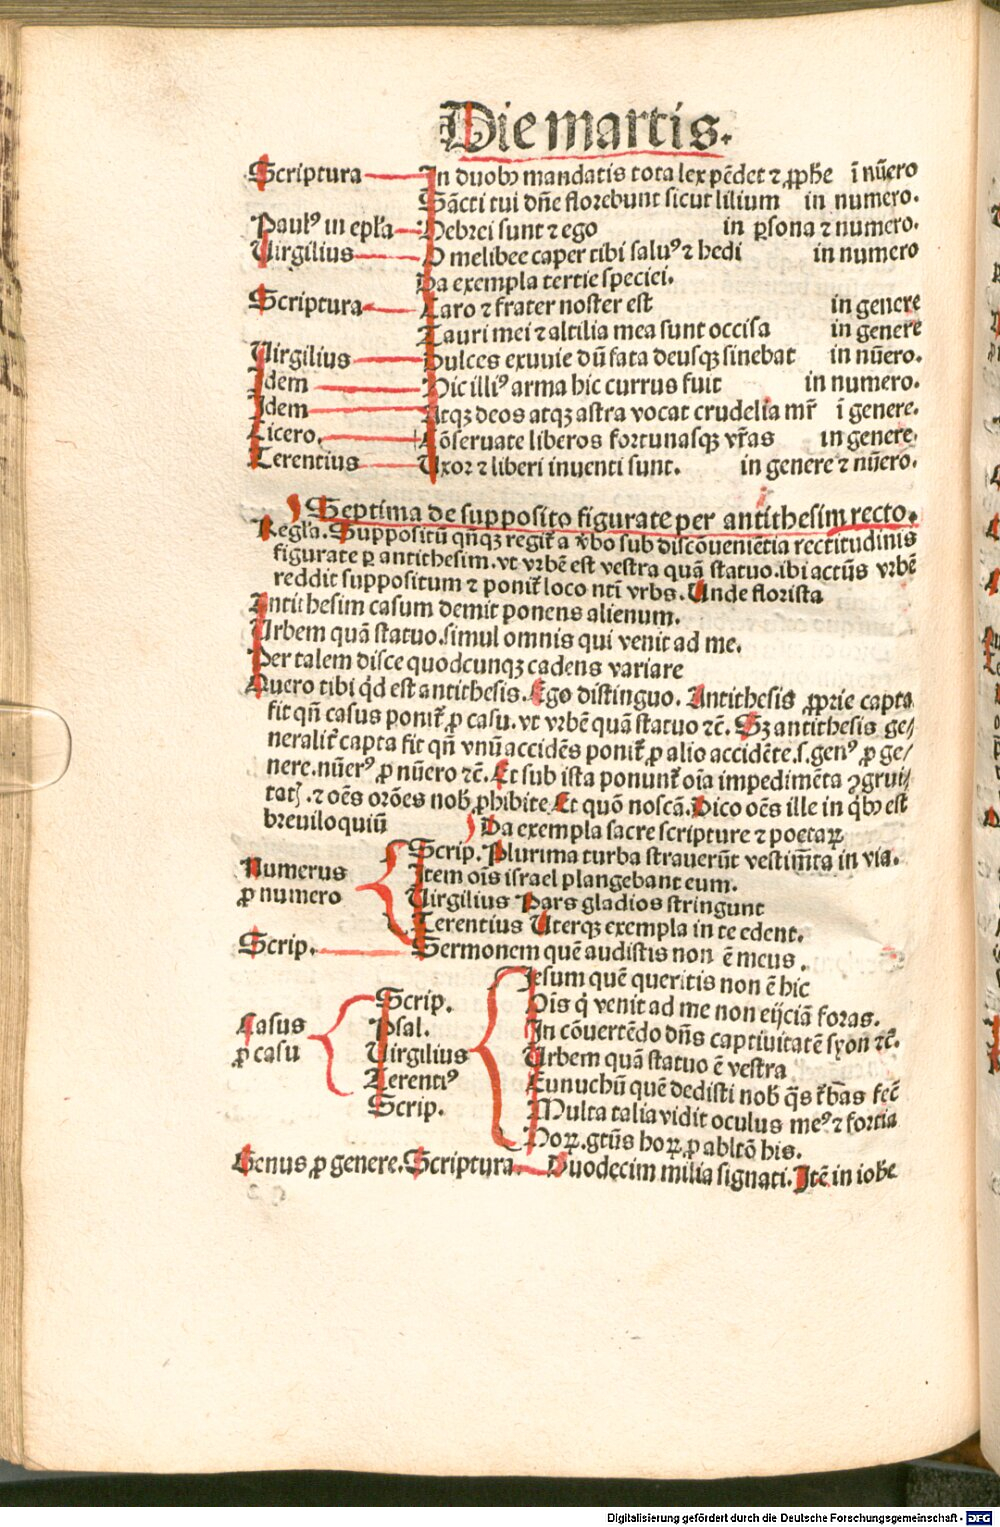 Die martis.
Scriptura In duobꝫ mandatis tota lex pēdet ⁊ ꝓphe ī nūero
Sācti tui dn̄e florebunt sicut lilium in numero.
Paulꝰ in epl̄a Hebrei sunt ⁊ ego in ꝑsona ⁊ numero.
Uirgilius O melibee caper tibi saluꝰ ⁊ hedi in numero
Da exempla tertie speciei.
Scriptura Caro ⁊ frater noster est in genere
Tauri mei ⁊ altilia mea sunt occisa in genere
Uirgilius Dulces exuuie dū fata deusqꝫ sinebat in nūero.
Idem Hic illiꝰ arma hic currus fuit in numero.
Idem Atqꝫ deos atqꝫ astra vocat crudelia mr̄ ī genere.
Cicero. Cōseruate liberos fortunasqꝫ vr̄as in genere.
Terentius Uxor ⁊ liberi inuenti sunt. in genere ⁊ nūero.
Septima de supposito figurate per antithesim recto.
Regl̄a. Suppositū qn̄qꝫ regit᷑ a v̓bo sub discōueniētia rectitudinis
figurate ꝑ antithesim. vt vrbē est vestra quā statuo. ibi actiūs vrbē
reddit suppositum ⁊ ponit᷑ loco nt̄i vrbs. Unde florista
Antithesim casum demit ponens alienum.
Urbem quā statuo. simul omnis qui venit ad me.
Per talem disce quodcunqꝫ cadens variare
Quero tibi qͥd est antithesis. Ego distinguo. Antithesis ꝓprie capta
fit qn̄ casus ponit᷑ ꝓ casu. vt vrbē quā statuo ⁊c̄. Sꝫ antithesis ge⸗
neralit᷑ capta fit qn̄ vnū accidēs ponit᷑ ꝓ alio accidēte. s. genꝰ ꝓ ge⸗
nere. nūerꝰ ꝓ nūero ⁊c̄. Et sub ista ponunt᷑ oīa impedimēta ꝯgrui⸗
tatꝭ. ⁊ oēs orōes nob̄ ꝓhibite. Et quō noscā. Dico oēs ille in qͥbꝫ est
breuiloquiū Da exempla sacre scripture ⁊ poetaꝝ
Numerus
ꝓ numero
Scrip. Plurima turba strauerūt vestim̄ta in via.
Item oīs israel plangebant eum.
Uirgilius Pars gladios stringunt
Terentius Uterqꝫ exempla in te edent.
Scrip. Sermonem quē audistis non ē meus.
Casus
ꝓ casu
Scrip. Jesum quē queritis non ē hic
Oīs qͥ venit ad me non eijciā foras.
Psal. In cōuertēdo dn̄s captiuitatē syon ⁊c̄.
Uirgilius Urbem quā statuo ē vestra
Terentiꝰ Eunuchū quē dedisti nob̄ qͣs t᷑bas fec̄
Scrip. Multa talia vidit oculus meꝰ ⁊ fortia
Hoꝝ. gtīus hoꝝ. ꝓ ablt̄o his.
Genus ꝓ genere. Scriptura. Duodecim milia signati. Itē in iobe